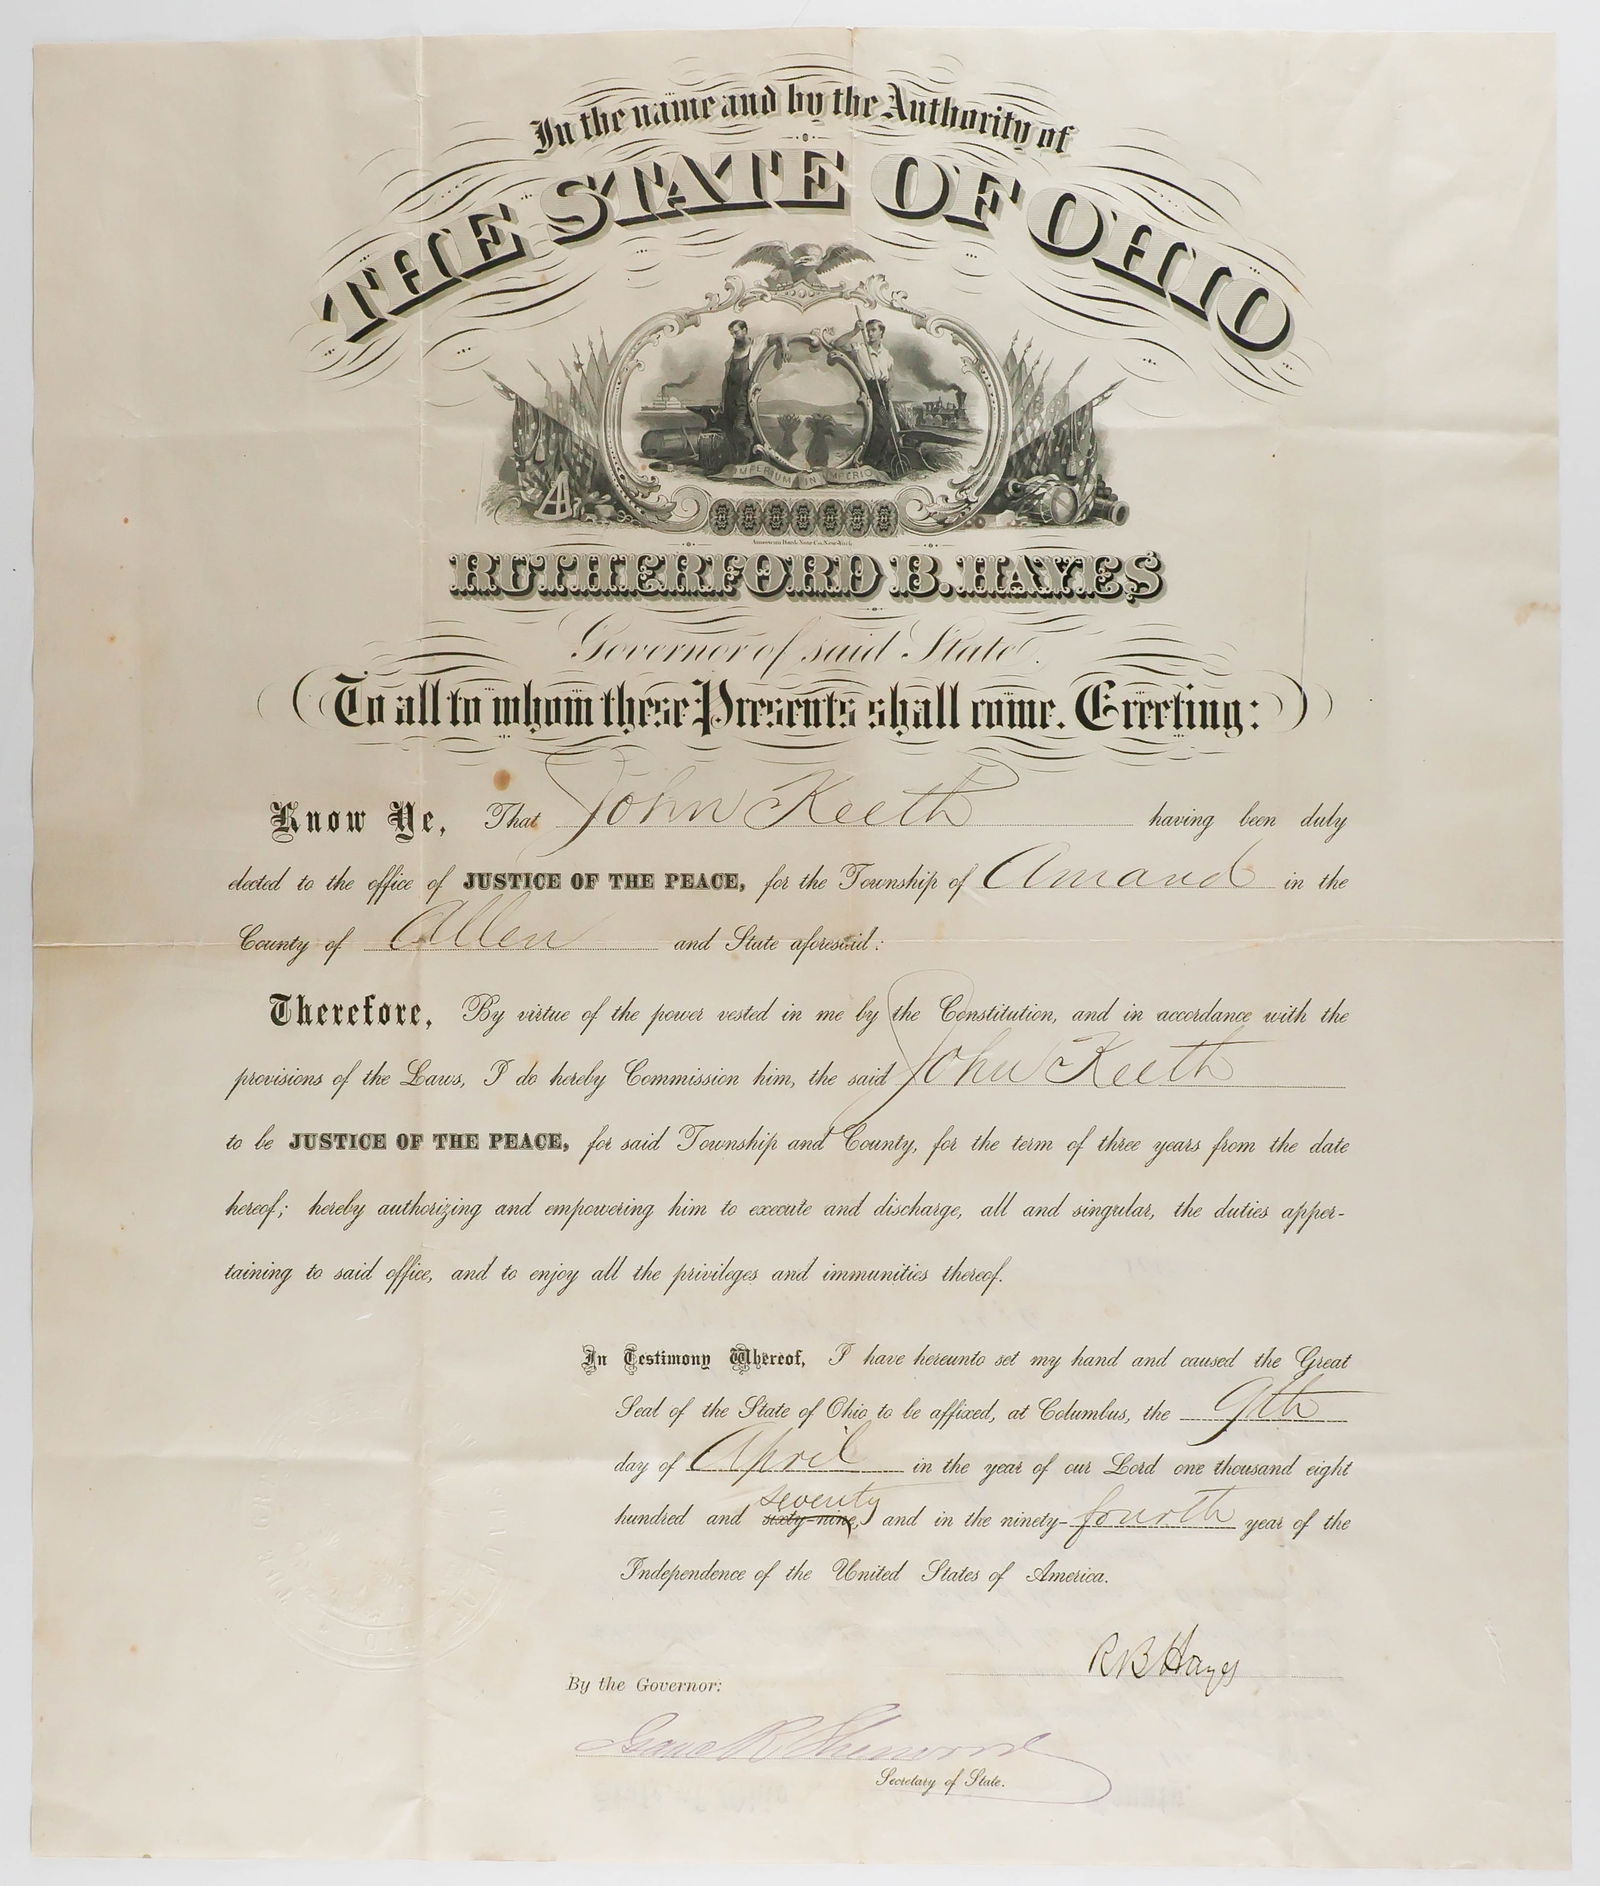 In the name and by the Authority of
THE STATE OF OHIO
IMPERIUM IN IMPERIO
American Bank Note Co. New York
RUTHERFORD B. HAYES
Governor of said State.
To all to whom these Presents shall come. Greeting:
Know Ye, That John Keeth having been duly
elected to the office of JUSTICE OF THE PEACE, for the Township of Amand in the
County of Allen and State aforesaid:
Therefore, By virtue of the power vested in me by the Constitution, and in accordance with the
provisions of the Laws, I do hereby Commission him, the said John Keeth
to be JUSTICE OF THE PEACE, for said Township and County, for the term of three years from the date
hereof; hereby authorizing and empowering him to execute and discharge, all and singular, the duties apper-
taining to said office, and to enjoy all the privileges and immunities thereof.
In Testimony Whereof, I have hereunto set my hand and caused the Great
Seal of the State of Ohio to be affixed, at Columbus, the 9th
day of April in the year of our Lord one thousand eight
seventy
hundred and sixty-nine, and in the ninety-fourth year of the
Independence of the United States of America.
R B Hayes
By the Governor:
Isaac R Sherwood
Secretary of State.